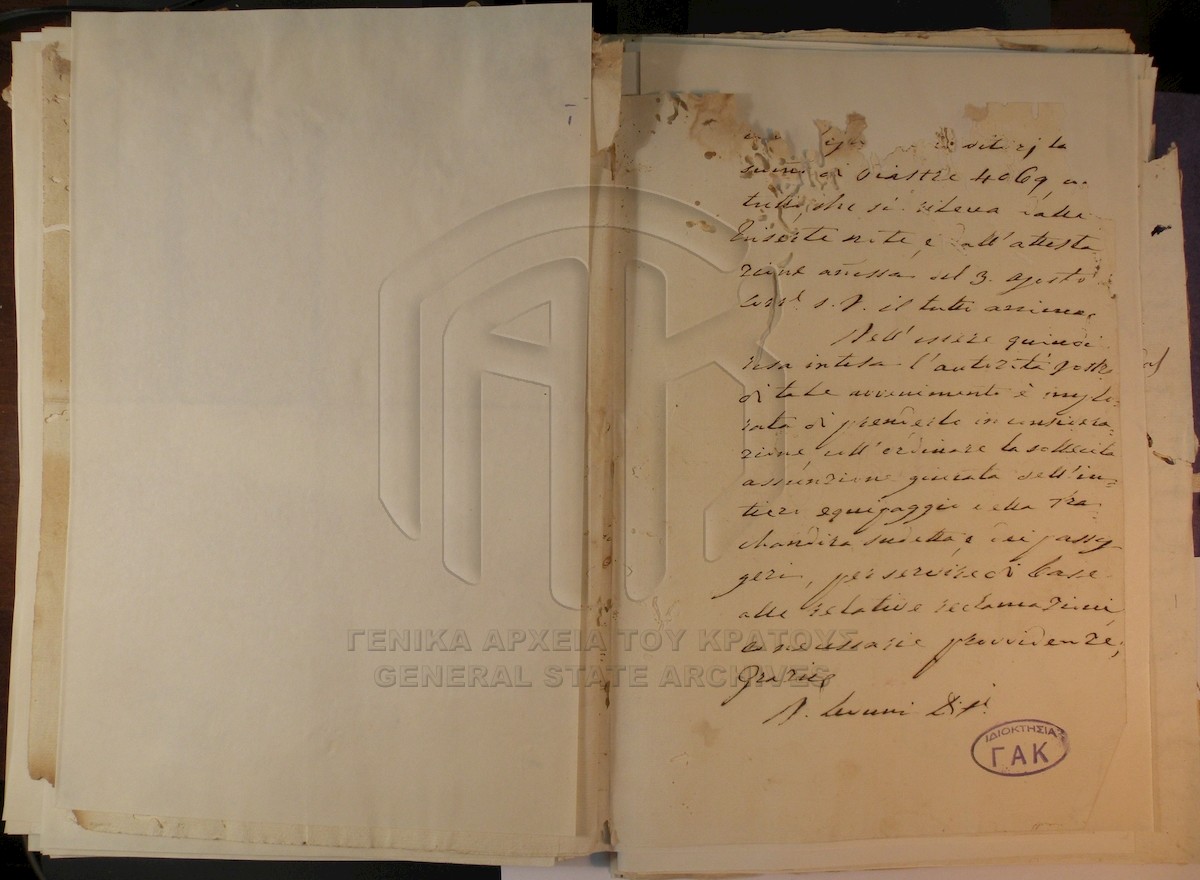 di Piastre 4069,
tutto che si rileva dalle
Inserte note, e dall'attesta
zione annessa del 3. Agosto
Corr.e s. N. il tutto
Nell'essere quindi
resa intesa l'autorità
di tale avvenimento è implo-
rata di prenderlo in considera-
zione coll'ordinare la sollecita
assunzione giurata dell'in-
tiero equipaggio della Tra-
chandira sudetta, e dei passag
geri, per servire di base
alle relative reclamazioni
e necessarie providenze,
Grazie
ΓΕΝΙΚΑ ΑΡΧΕΙΑ ΤΟΥ ΚΡΑΤΟΥΣ
GENERAL STATE ARCHIVES
ΙΔΙΟΚΤΗΣΙΑ
ΓΑΚ